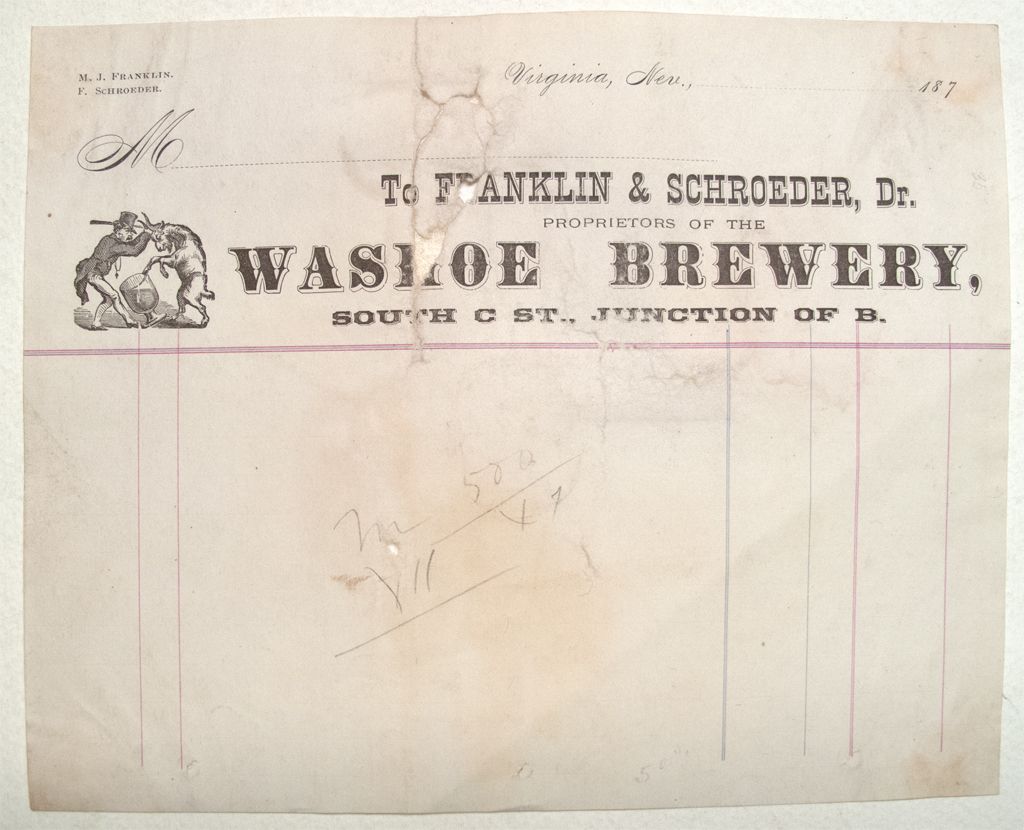 M. J. FRANKLIN.
F. SCHROEDER.
Virginia, Nev., 187
M
To FRANKLIN & SCHROEDER, Dr.
PROPRIETORS OF THE
WASHOE BREWERY,
SOUTH C ST., JUNCTION OF B.
500